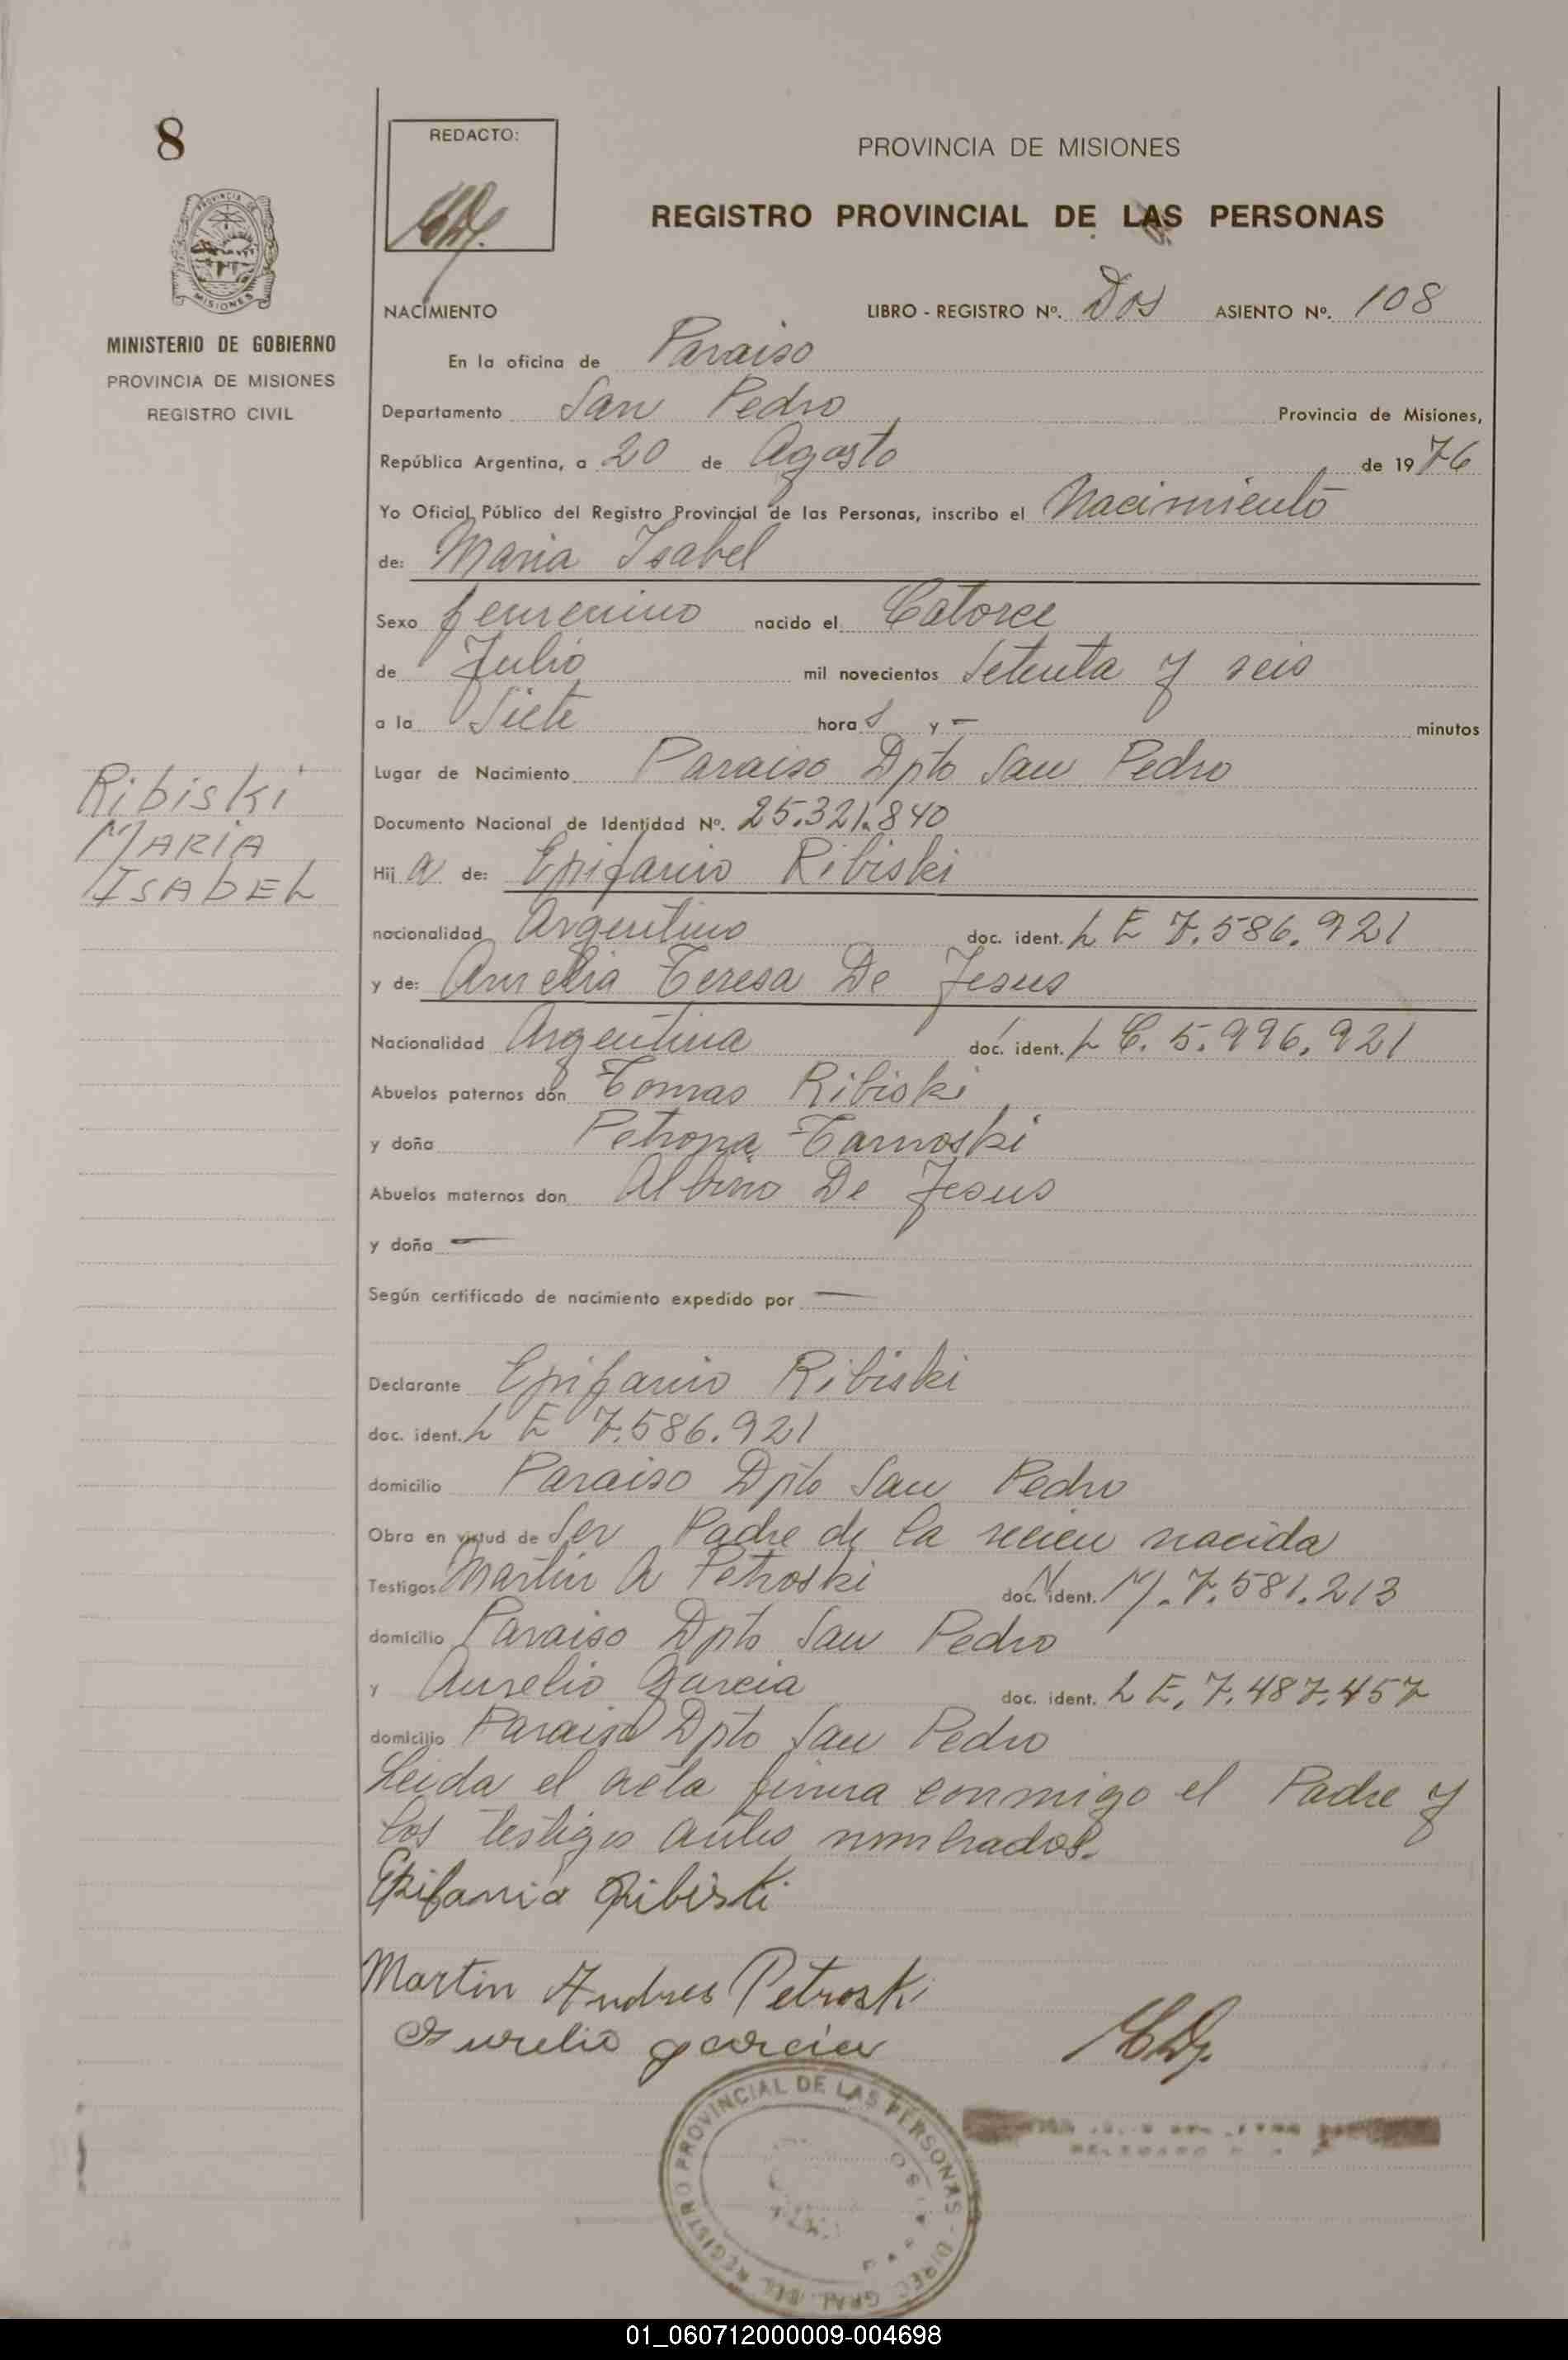 8
REDACTO:
PROVINCIA DE MISIONES
REGISTRO PROVINCIAL DE LAS PERSONAS
PROVINCIA DE
MISIONES
MINISTERIO DE GOBIERNO
PROVINCIA DE MISIONES
REGISTRO CIVIL
NACIMIENTO LIBRO - REGISTRO Nº. Dos ASIENTO Nº. 108
En la oficina de Paraiso
Departamento San Pedro Provincia de Misiones,
República Argentina, a 20 de Agosto de 1976
Yo Oficial Público del Registro Provincial de las Personas, inscribo el Nacimiento
de: Maria Isabel
Sexo femenino nacido el Catorce
de Julio mil novecientos Setenta y seis
a la Siete horas y — minutos
Lugar de Nacimiento Paraiso Dpto San Pedro
Ribiski
MARIA
ISABEL
Documento Nacional de Identidad Nº. 25.321.840
Hija de: Epifanio Ribiski
nacionalidad Argentino doc. ident. L E 7.586.921
y de: Aurelia Teresa De Jesus
Nacionalidad Argentina doc. ident. L C. 5.996.921
Abuelos paternos don Tomas Ribiski
y doña Petrona Tarnoski
Abuelos maternos don Albino De Jesus
y doña —
Según certificado de nacimiento expedido por —
Declarante Epifanio Ribiski
doc. ident. L E 7.586.921
domicilio Paraiso Dpto San Pedro
Obra en virtud de Ser Padre de la recien nacida
Testigos Martin A Petroski doc. ident. M. 7.581.213
domicilio Paraiso Dpto San Pedro
y Aurelio Garcia doc. ident. L E. 7.487.457
domicilio Paraiso Dpto San Pedro
Leida el acta firma conmigo el Padre y
los testigos antes nombrados.
Epifanio Ribiski
Martin Andres Petroski
Aurelio garcia
REGISTRO PROVINCIAL DE LAS PERSONAS - DIREC. GRAL. DEL
01_060712000009-004698